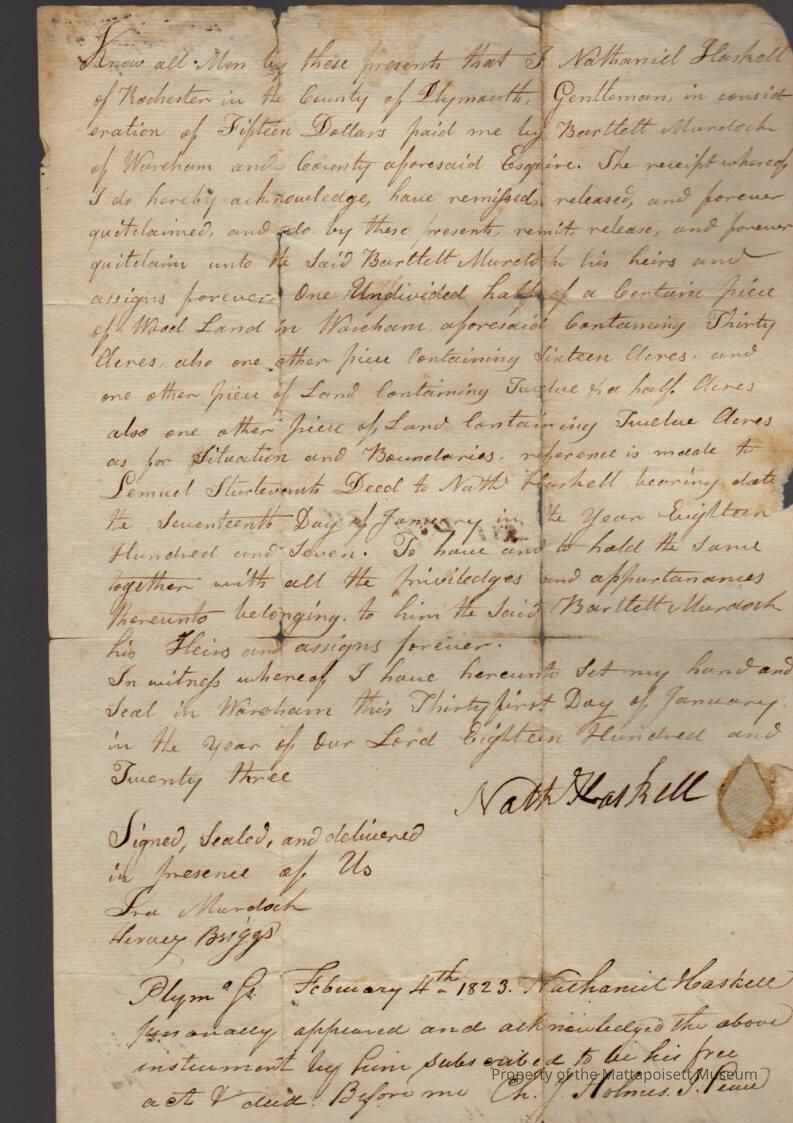 Know all Men by these presents that I Nathaniel Haskell
of Rochester in the County of Plymouth, Gentleman, in consid
eration of Fifteen Dollars paid me by Bartlett Murdoch
of Wareham and County aforesaid Esquire. The receipt whereof
I do hereby acknowledge, have remissed, released, and forever
quitclaimed, and do by these presents, remit, release, and forever
quitclaim unto the Said Bartlett Murdoch his heirs and
assigns forever. One Undivided half of a Certain piece
of Wood Land in Wareham aforesaid Containing Thirty
Acres, also one other piece Containing Sixteen Acres. and
one other piece of Land Containing Twelve & a half Acres
also one other piece of Land Containing Twelve Acres
as for Situation and Boundaries. reference is made to
Lemuel Sturtevants Deed to Nath Haskell bearing date
the Seventeenth Day of January in the Year Eighteen
Hundred and Seven. To have and to hold the Same
together with all the priviledges and appurtanances
thereunto belonging. to him the Said Bartlett Murdoch
his Heirs and assigns forever.
In witness whereof I have hereunto Set my hand and
Seal in Wareham this Thirty first Day of January
in the Year of Our Lord Eighteen Hundred and
Twenty three
Nath Haskell
Signed, Sealed, and delivered
in presence of Us
Ira Murdoch
Hervey Briggs
Plym a February 4th 1823. Nathaniel Haskell
personally appeared and acknowledged the above
instrument by him subscribed to be his free
act & deed. Before me Ch. J. Holmes. J. Peace
Property of the Mattapoisett Museum